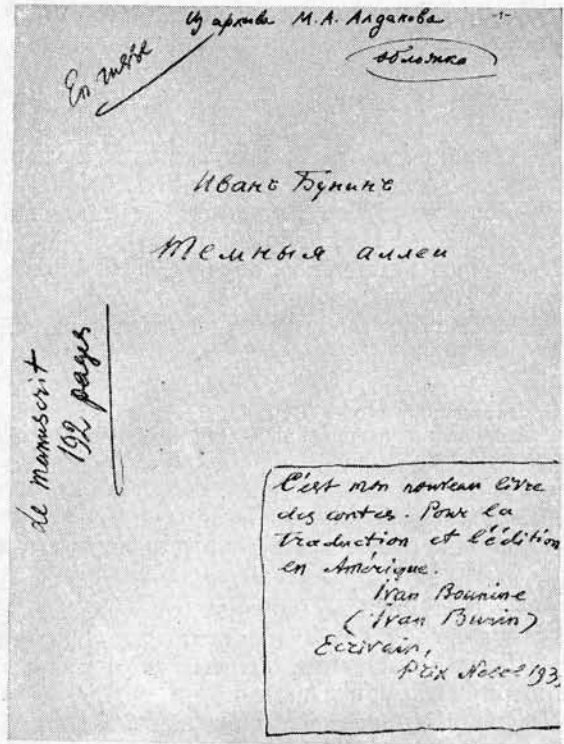 Из архива М.А. Алданова
обложка
En russe
Иванъ Бунинъ
Темныя аллеи
de manuscrit
192 pages
C'est mon nouveau livre
des contes. Pour la
traduction et l'édition
en Amérique.
Ivan Bounine
(Ivan Bunin)
Ecrivain,
Prix Nobel 193